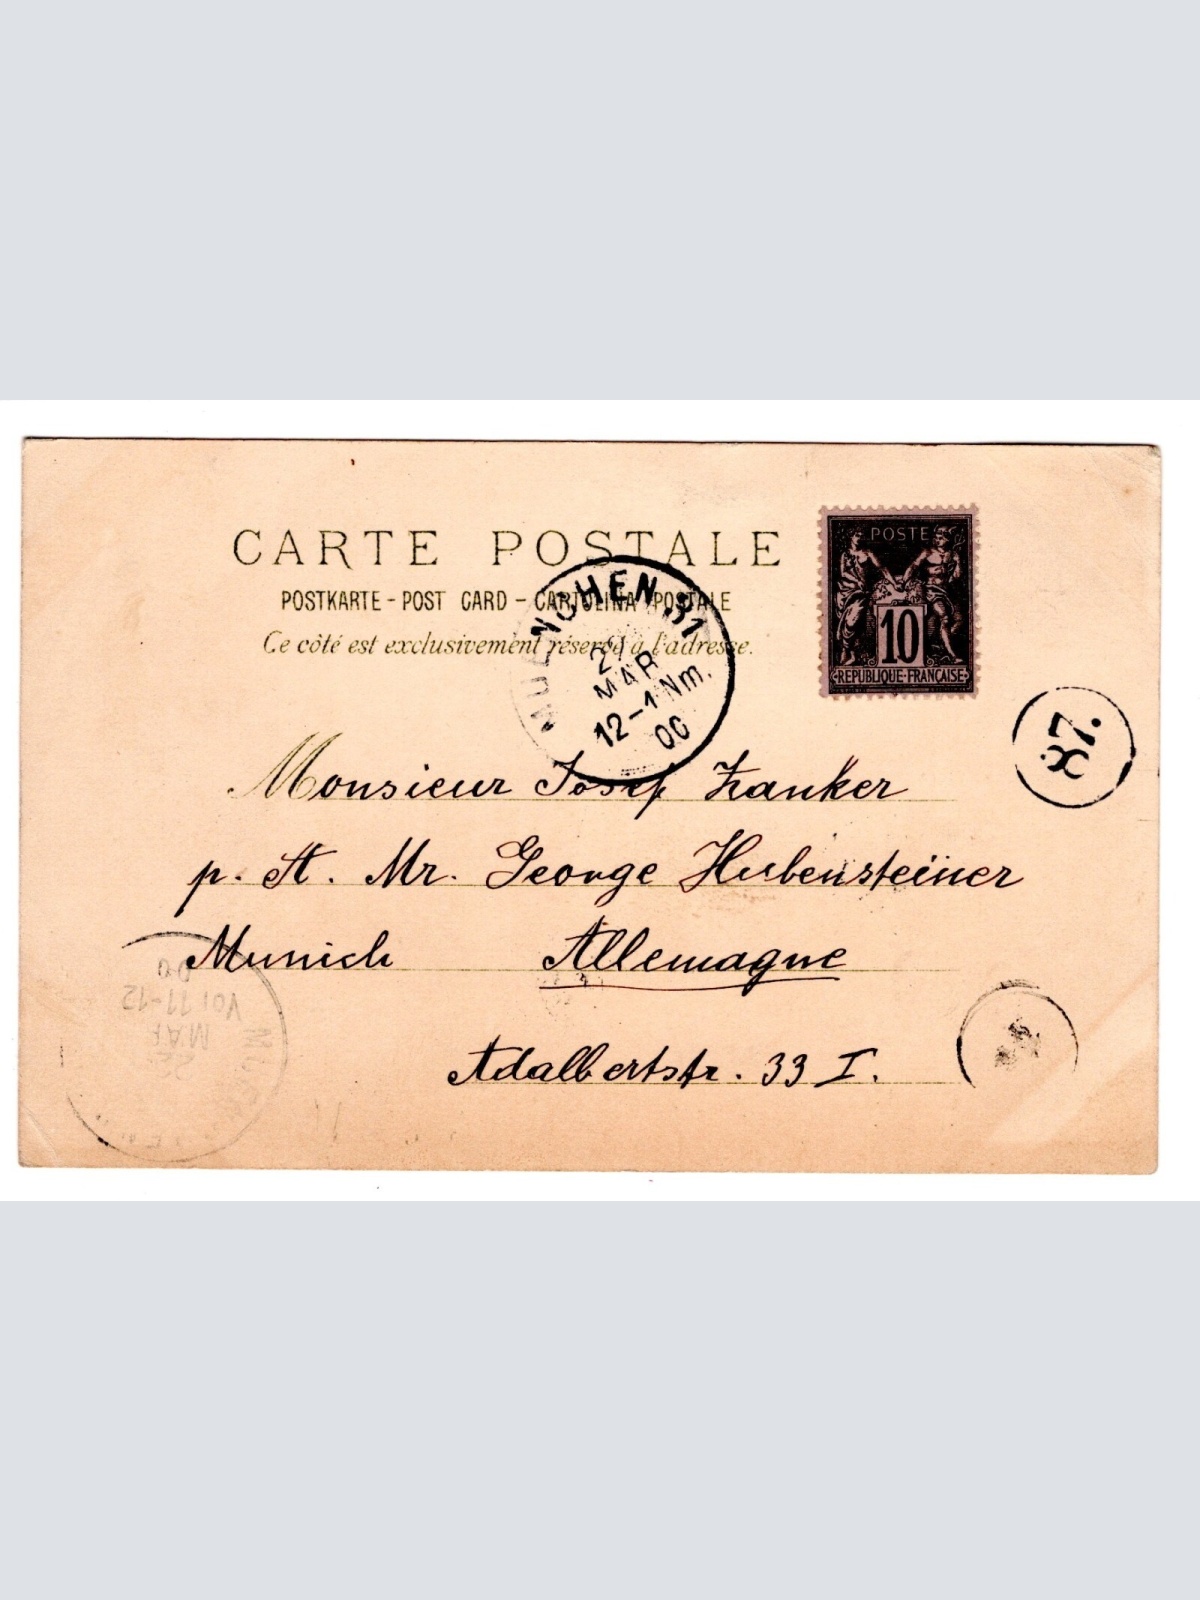 CARTE POSTALE
POSTKARTE - POST CARD - CARTOLINA POSTALE
Ce côté est exclusivement réservé à l'adresse.
POSTE
10
REPUBLIQUE FRANÇAISE
MUENCHEN 31
MAR
12-1 Nm.
00
87.
Monsieur Josef Zanker
p. A. Mr. George Hubensteiner
Munich Allemagne
Adalbertstr. 33 I.
MAR
Vo 11-12
00